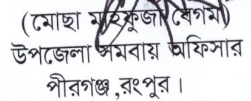 (মোছাঃ মাহফুজা বেগম)
উপজেলা সমবায় অফিসার
পীরগঞ্জ,রংপুর।